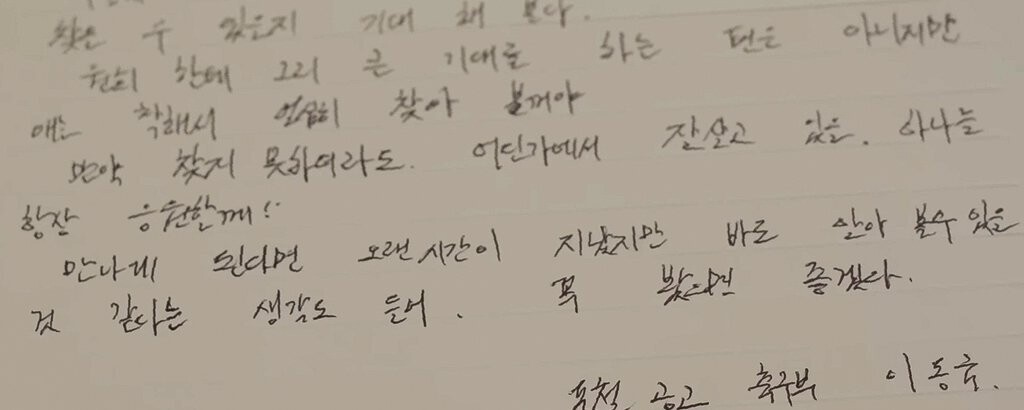 찾은 수 있은지 기대 해 본다.
원희 한테 그리 큰 기대를 하는 편은 아니지만
애는 착해서 열심히 찾아 볼꺼야
만약 찾지 못하더라도. 어딘가에서 잘살고 있을. 하나를
항상 응원할께!
만나게 된다면 오랜시간이 지났지만 바로 알아 볼수 있을
것 같다는 생각도 들어. 꼭 봤으면 좋겠다.
공고 축구부 이동국.